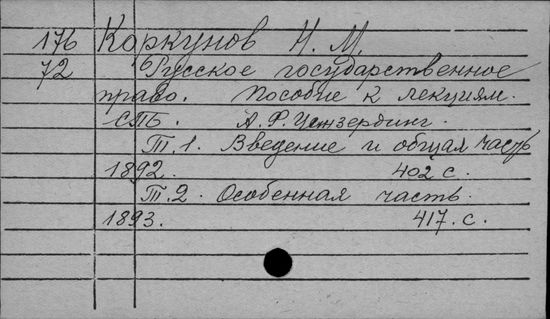 176 Коркунов Н. М.
72 Русское государственное
право. Пособие к лекциям.
СПБ. А. Ф. Цинзерлинг.
Т. 1. Введение и общая часть
1892. 402 с.
Т. 2. Особенная часть.
1893. 417. с.